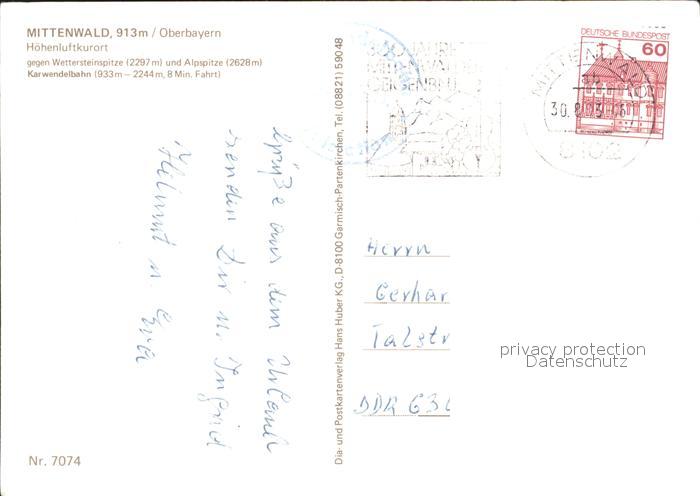 MITTENWALD, 913m / Oberbayern
Höhenluftkurort
gegen Wettersteinspitze (2297m) und Alpspitze (2628m)
Karwendelbahn (933m – 2244m, 8 Min. Fahrt)
Grüße aus dem Urlaub
senden Dir u. Ingrid
Helmut u. Eva
Nr. 7074
Dia- und Postkartenverlag Hans Huber KG., D-8100 Garmisch-Partenkirchen, Tel. (08821) 59048
MITTENWALD
30.8.83
8102
DEUTSCHE BUNDESPOST
60
Herrn
Gerhar
Talstr
DDR 630
privacy protection
Datenschutz